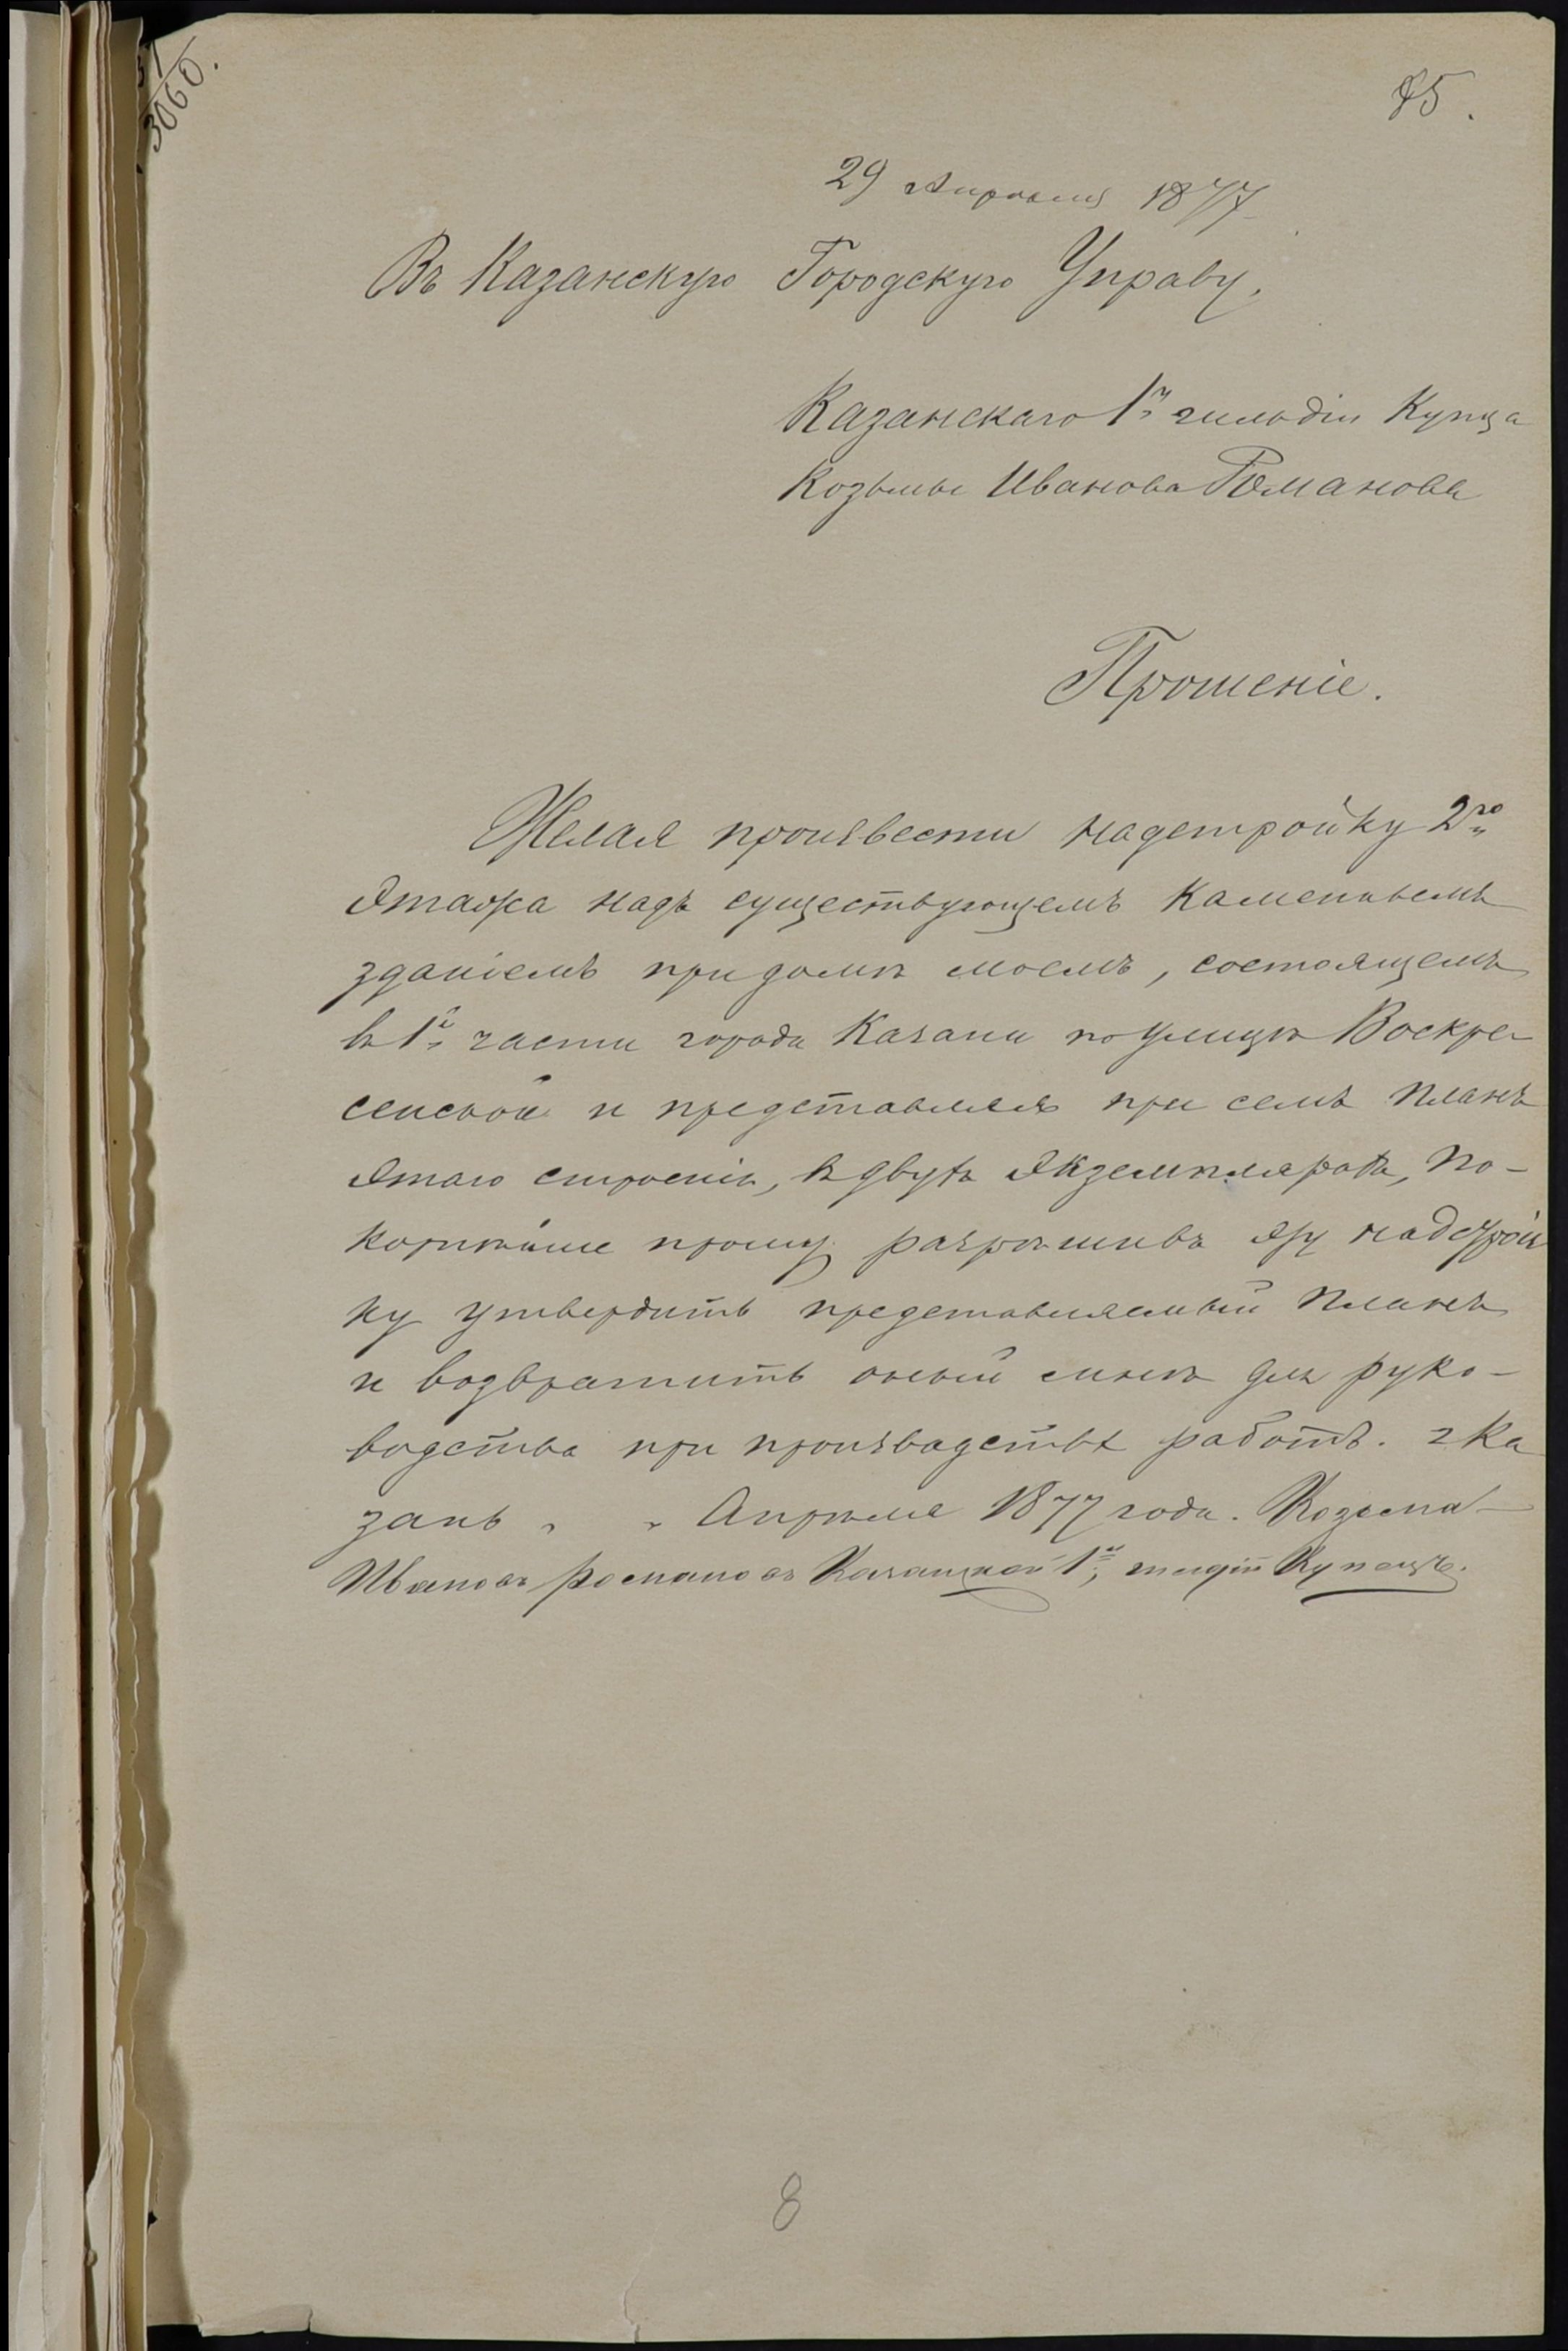 3060.
85.
29 Апрѣля 1877
Въ Казанскую Городскую Управу,
Казанскаго 1й гильдіи Купца
Козьмы Иванова Романова
Прошеніе.
Желая произвести надстройку 2го
этажа надъ существующемъ каменнымъ
зданіемъ при домѣ моемъ, состоящемъ
въ 1й части города Казани по улицѣ Воскре
сенской и представляя при семъ планъ
этаго строенія, въ двухъ экземплярахъ, по-
корнѣйше прошу разрѣшивъ эту надстрой
ку утвердить представляемый планъ
и возвратить оный мнѣ для руко-
водства при производствѣ работъ. г Ка
зань „ „ Апрѣля 1877 года. Козьма
Ивановъ Романовъ Казанской 1й гильдіи Купецъ.
8